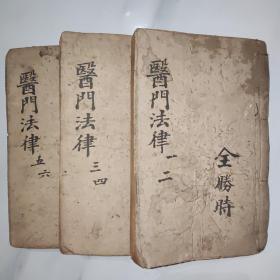 醫門法律 一二
全勝時
醫門法律 三四
醫門法律 五六